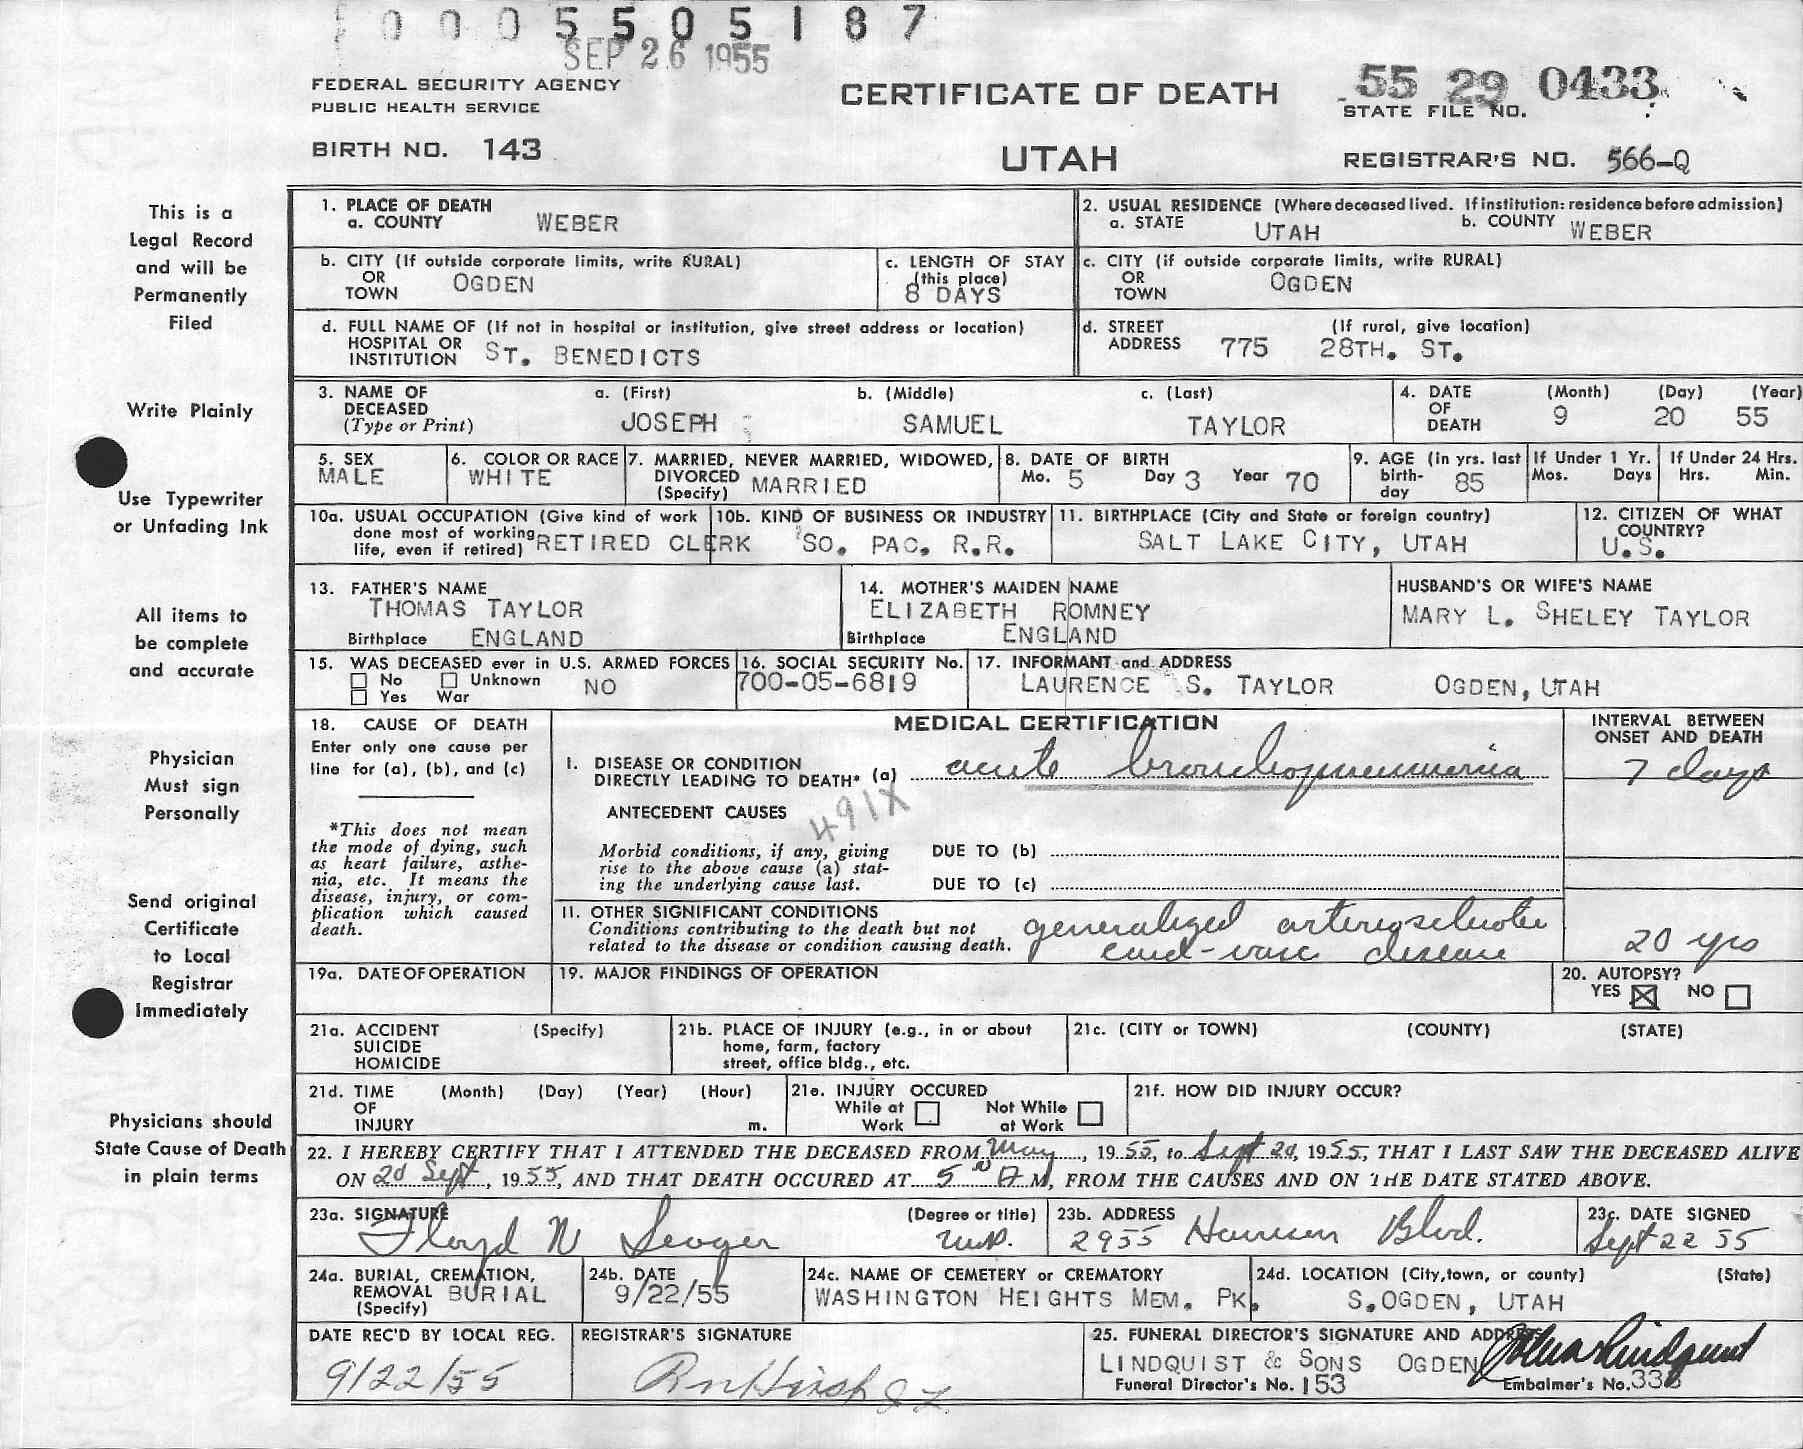 0 0 0 5 5 0 5 1 8 7
SEP 26 1955
FEDERAL SECURITY AGENCY
PUBLIC HEALTH SERVICE
CERTIFICATE OF DEATH
55 29 0433
STATE FILE NO.
BIRTH NO. 143
UTAH
REGISTRAR'S NO. 566-Q
This is a
Legal Record
and will be
Permanently
Filed
Write Plainly
Use Typewriter
or Unfading Ink
All items to
be complete
and accurate
Physician
Must sign
Personally
Send original
Certificate
to Local
Registrar
Immediately
Physicians should
State Cause of Death
in plain terms
1. PLACE OF DEATH
a. COUNTY WEBER
2. USUAL RESIDENCE (Where deceased lived. If institution: residence before admission)
a. STATE UTAH b. COUNTY WEBER
b. CITY (If outside corporate limits, write RURAL)
OR
TOWN OGDEN
c. LENGTH OF STAY
(this place)
8 DAYS
c. CITY (if outside corporate limits, write RURAL)
OR
TOWN OGDEN
d. FULL NAME OF (If not in hospital or institution, give street address or location)
HOSPITAL OR
INSTITUTION ST. BENEDICTS
d. STREET (If rural, give location)
ADDRESS 775 28TH. ST.
3. NAME OF DECEASED (Type or Print)
a. (First) b. (Middle) c. (Last)
JOSEPH SAMUEL TAYLOR
4. DATE OF DEATH (Month) (Day) (Year)
9 20 55
5. SEX
MALE
6. COLOR OR RACE
WHITE
7. MARRIED, NEVER MARRIED, WIDOWED,
DIVORCED
(Specify) MARRIED
8. DATE OF BIRTH
Mo. 5 Day 3 Year 70
9. AGE (in yrs. last
birth-
day 85
If Under 1 Yr.
Mos. Days
If Under 24 Hrs.
Hrs. Min.
10a. USUAL OCCUPATION (Give kind of work
done most of working
life, even if retired) RETIRED CLERK
10b. KIND OF BUSINESS OR INDUSTRY
SO. PAC. R.R.
11. BIRTHPLACE (City and State or foreign country)
SALT LAKE CITY, UTAH
12. CITIZEN OF WHAT
COUNTRY?
U.S.
13. FATHER'S NAME
THOMAS TAYLOR
Birthplace ENGLAND
14. MOTHER'S MAIDEN NAME
ELIZABETH ROMNEY
Birthplace ENGLAND
HUSBAND'S OR WIFE'S NAME
MARY L. SHELEY TAYLOR
15. WAS DECEASED ever in U.S. ARMED FORCES
No Unknown NO
Yes War
16. SOCIAL SECURITY No.
700-05-6819
17. INFORMANT and ADDRESS
LAURENCE S. TAYLOR OGDEN, UTAH
18. CAUSE OF DEATH
Enter only one cause per
line for (a), (b), and (c)
*This does not mean
the mode of dying, such
as heart failure, asthe-
nia, etc. It means the
disease, injury, or com-
plication which caused
death.
MEDICAL CERTIFICATION
INTERVAL BETWEEN
ONSET AND DEATH
I. DISEASE OR CONDITION
DIRECTLY LEADING TO DEATH* (a) acute bronchopneumonia 7 days
ANTECEDENT CAUSES 491X
Morbid conditions, if any, giving
rise to the above cause (a) stat-
ing the underlying cause last.
DUE TO (b)
DUE TO (c)
II. OTHER SIGNIFICANT CONDITIONS
Conditions contributing to the death but not
related to the disease or condition causing death.
generalized arteriosclerotic
card-vasc disease 20 yrs
19a. DATE OF OPERATION
19. MAJOR FINDINGS OF OPERATION
20. AUTOPSY?
YES ☒ NO ☐
21a. ACCIDENT (Specify)
SUICIDE
HOMICIDE
21b. PLACE OF INJURY (e.g., in or about
home, farm, factory
street, office bldg., etc.
21c. (CITY or TOWN) (COUNTY) (STATE)
21d. TIME (Month) (Day) (Year) (Hour)
OF
INJURY m.
21e. INJURY OCCURED
While at Work Not While at Work
21f. HOW DID INJURY OCCUR?
22. I HEREBY CERTIFY THAT I ATTENDED THE DECEASED FROM May, 1955, to Sept 20, 1955, THAT I LAST SAW THE DECEASED ALIVE
ON 20 Sept, 1955, AND THAT DEATH OCCURED AT 5 A M, FROM THE CAUSES AND ON THE DATE STATED ABOVE.
23a. SIGNATURE (Degree or title)
Floyd N Seager M.D.
23b. ADDRESS
2955 Harrison Blvd.
23c. DATE SIGNED
Sept 22 55
24a. BURIAL, CREMATION,
REMOVAL BURIAL
(Specify)
24b. DATE
9/22/55
24c. NAME OF CEMETERY or CREMATORY
WASHINGTON HEIGHTS MEM. PK.
24d. LOCATION (City, town, or county) (State)
S. OGDEN, UTAH
DATE REC'D BY LOCAL REG.
9/22/55
REGISTRAR'S SIGNATURE
25. FUNERAL DIRECTOR'S SIGNATURE AND ADDRESS
LINDQUIST & SONS OGDEN
Funeral Director's No. 153 Embalmer's No. 333